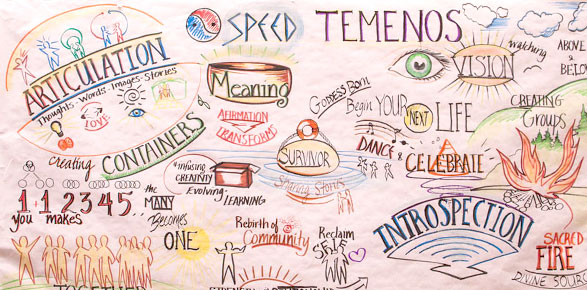 SPEED
TEMENOS
ARTICULATION
Thoughts · Words · Images · Stories
LOVE
Meaning
AFIRMATION
TRANSFORMS
creating
CONTAINERS
of
infusing
CREATIVITY
Evolving
LEARNING
1 1 2 3 4 5 ..
you makes
the
MANY
Becomes
ONE
TOGETHER
Rebirth of
Community
Reclaim
SELF
SURVIVOR
Sharing Stories
Goddess Born
Begin YOUR
NEXT
LIFE
DANCE &
CELEBRATE
VISION
watching
ABOVE
&
BELOW
CREATING
Groups
INTROSPECTION
SACRED
FIRE
DIVINE SOURCE